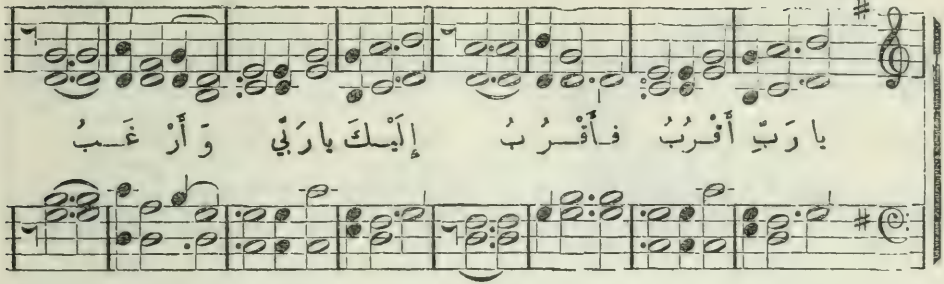 يا رَبِّ أَقْرُبُ فَأَقْـرُ بُ إِلَيْـكَ يا رَبِّي وَ أَرْ غَـبُ